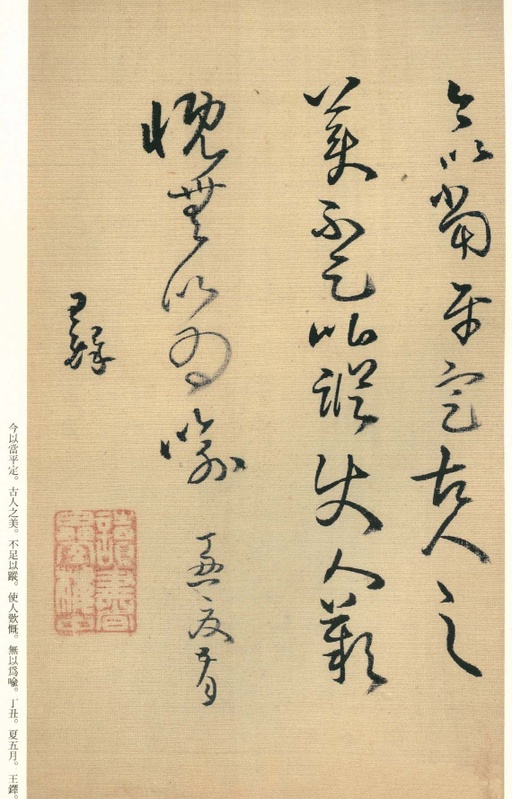 今以當平定古人之
美不足以蹤使人歎
慨無以為喻 丁丑夏五月
王鐸
今以當平定。古人之美。不足以蹤。使人歎慨。無以爲喻。丁丑。夏五月。王鐸。